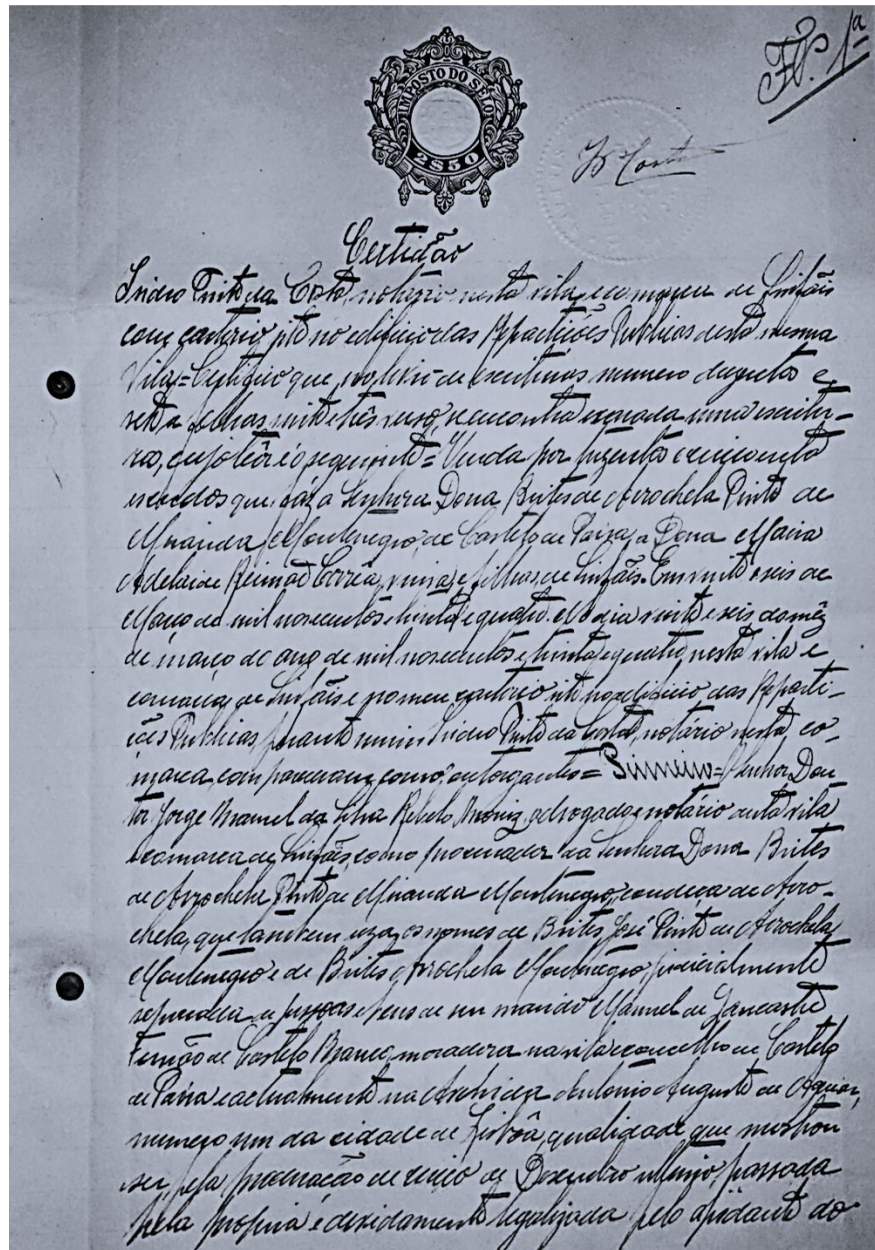 Fl. 1ª
IMPOSTO DO SELO
2$50
IPCosta
Certidão
Isidro Pinto da Costa, notário nesta vila e comarca de Sinfães
com cartório sito no edificio das Repartições Publicas desta mesma
Vila = Certifico que, no livro de escrituras numero duzentos e
sete a folhas vinte e três verso, se encontra exarada uma escritu-
ra, cujo teôr é o seguinte = Venda por trezentos e cincoenta
escudos que fáz a Senhora Dona Brites de Arrochela Pinto de
Miranda Montenegro, de Castelo de Paiva, a Dona Maria
Adelaide Reimão Corrêa, viuva e filhas, de Sinfães. Em vinte e seis de
Março de mil novecentos e trinta e quatro. No dia vinte e seis do mêz
de março do ano de mil novecentos e trinta e quatro, nesta vila e
comarca de Sinfães e no meu cartorio sito no edificio das Reparti-
ções Publicas, perante mim Isidro Pinto da Costa, notário nesta co-
marca, compareceram como outorgantes = Primeiro = Senhor Dou-
tor Jorge Manuel da Silva Rebelo Moniz, advogado e notário nesta vila
e comarca de Sinfães, como procurador da Senhora Dona Brites
de Arrochela Pinto de Miranda Montenegro, condeça de Arro-
chela, que tambem uza os nomes de Brites José Pinto de Arrochela
Montenegro e de Brites Arrochela Montenegro, judicialmente
separada de pessoas e bens de seu marido Manuel de Lancastre
Ferrão de Castelo Branco, moradora na vila e concelho de Castelo
de Paiva e actualmente na Avenida Antonio Augusto de Aguiar,
numero um da cidade de Lisbôa, qualidade que mostrou
ser pela procuração de de Dezembro ultimo, passada
pela propria e devidamente legalizada pelo ajudante do